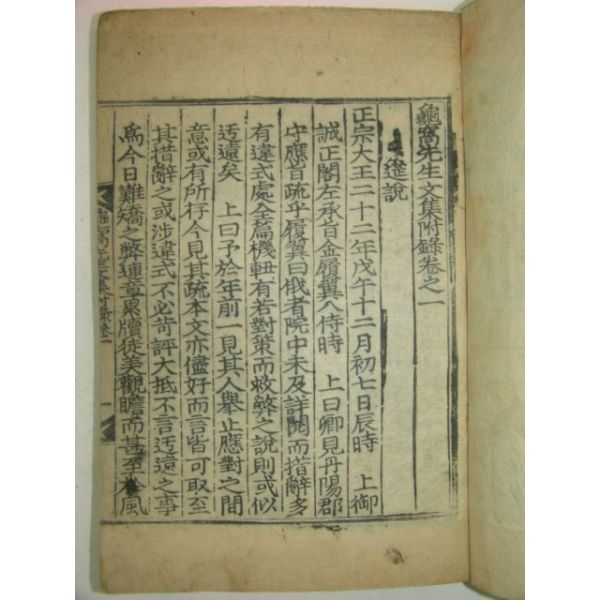 龜窩先生文集附錄卷之一
筵說
正宗大王二十二年戊午十二月初七日辰時 上御
誠正閣左承旨金履翼入侍時 上曰卿見丹陽郡
守應旨疏乎履翼曰俄者院中未及詳閱而措辭多
有違式處全篇機軸有若對策而救弊之說則或似
迂遠矣 上曰予於年前一見其人擧止應對之間
意或有所存今見其疏本文亦儘好而言皆可取至
其措辭之或涉違式不必苛評大抵不言迂遠之事
爲今日難矯之弊連章累牘徒美觀瞻而甚至於風
龜窩先生文集附錄卷一 一